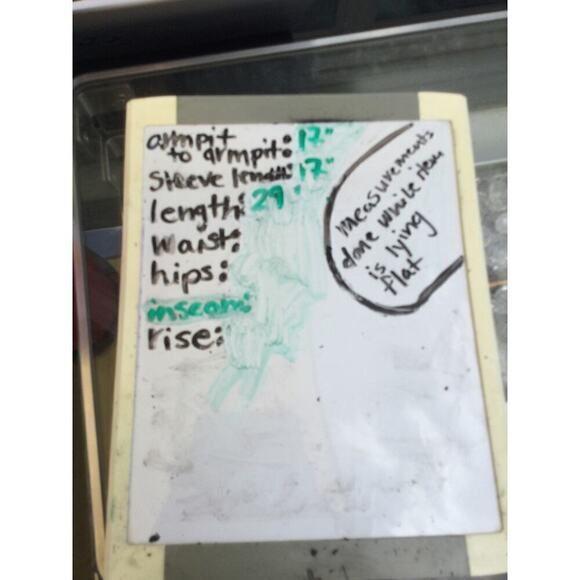 armpit
to armpit: 17"
sleeve length: 17"
length: 29"
waist:
hips:
inseam:
rise:
measurements
done while item
is lying
flat